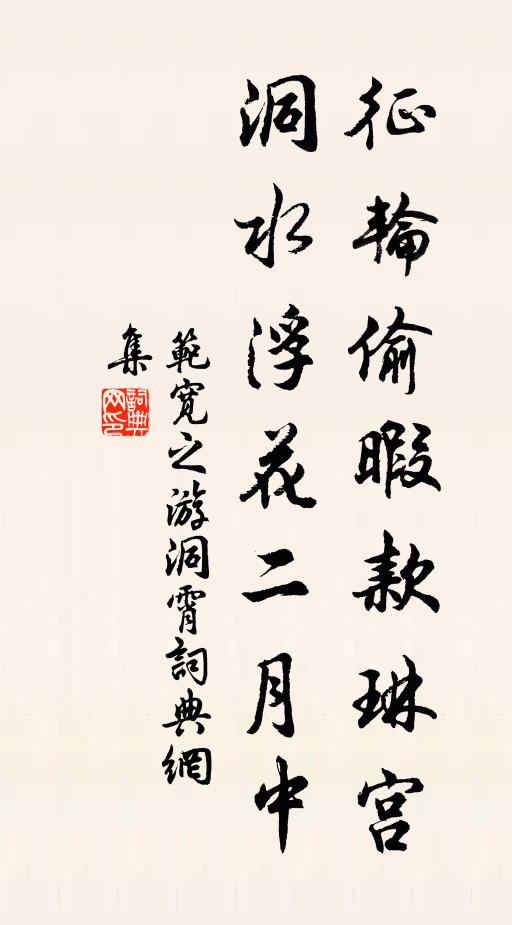 征輪偷暇款琳宫
洞水浮花二月中
範寬之游洞霄詞典網
集
詞典網印